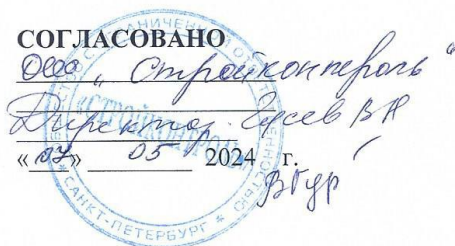 СОГЛАСОВАНО
ООО "Стройконтроль"
Директор Гусев В Н
«07» 05 2024 г.
САНКТ-ПЕТЕРБУРГ
«СТРОЙКОНТРОЛЬ»